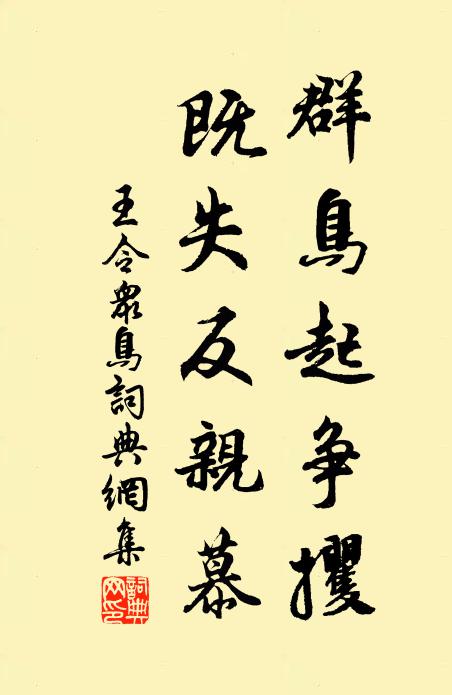 群鳥起爭攫
既失反親慕
王令眾鳥詞典網集
詞典網印